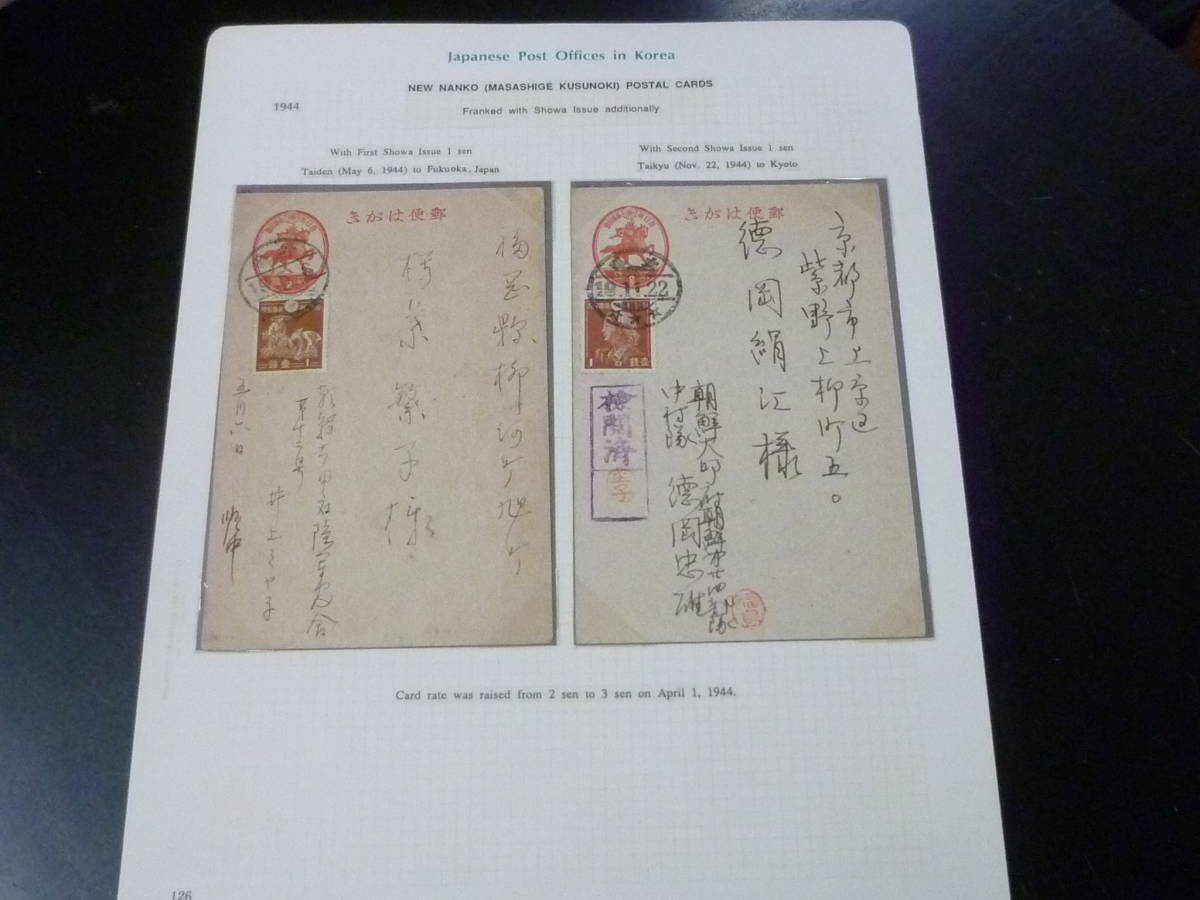 Japanese Post Offices in Korea
NEW NANKO (MASASHIGE KUSUNOKI) POSTAL CARDS
1944
Franked with Showa Issue additionally
With First Showa Issue 1 sen
Taiden (May 6, 1944) to Fukuoka, Japan
With Second Showa Issue 1 sen
Taikyu (Nov. 22, 1944) to Kyoto
きがは便郵
福岡縣柳河町旭町
繁子様
井上
五月六日
きがは便郵
京都市上京区
紫野上柳町五〇
德岡絹江様
19.11.22
検閲済
朝鮮大邱府朝鮮第廿四部隊
中村隊
德岡忠雄
Card rate was raised from 2 sen to 3 sen on April 1, 1944.
126